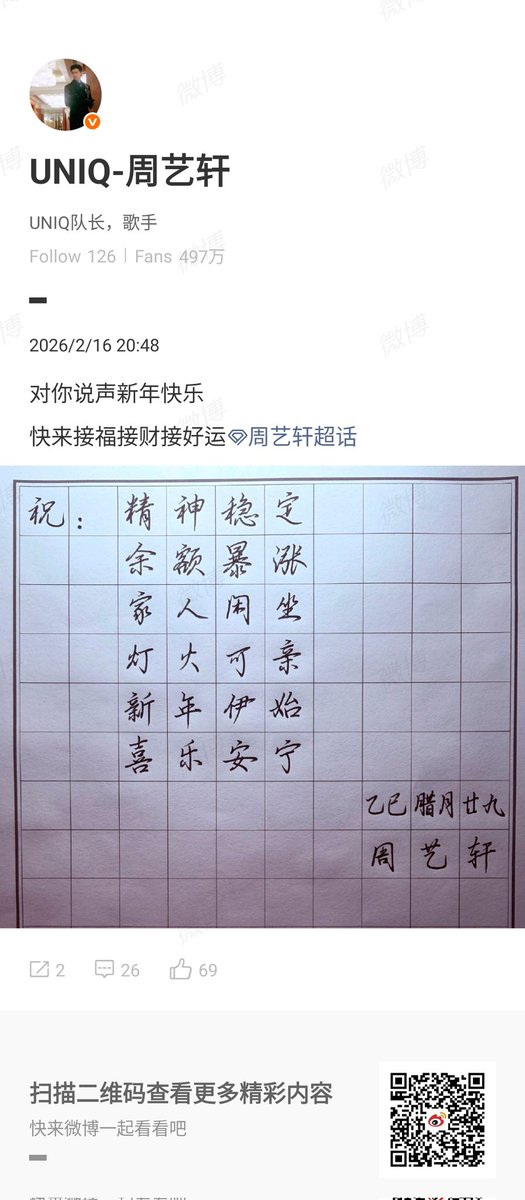 UNIQ-周艺轩
UNIQ队长，歌手
Follow 126 | Fans 497万
2026/2/16 20:48
对你说声新年快乐
快来接福接财接好运周艺轩超话
祝：精神稳定
余额暴涨
家人闲坐
灯火可亲
新年伊始
喜乐安宁
乙巳腊月廿九
周艺轩
2
26
69
扫描二维码查看更多精彩内容
快来微博一起看看吧
微博